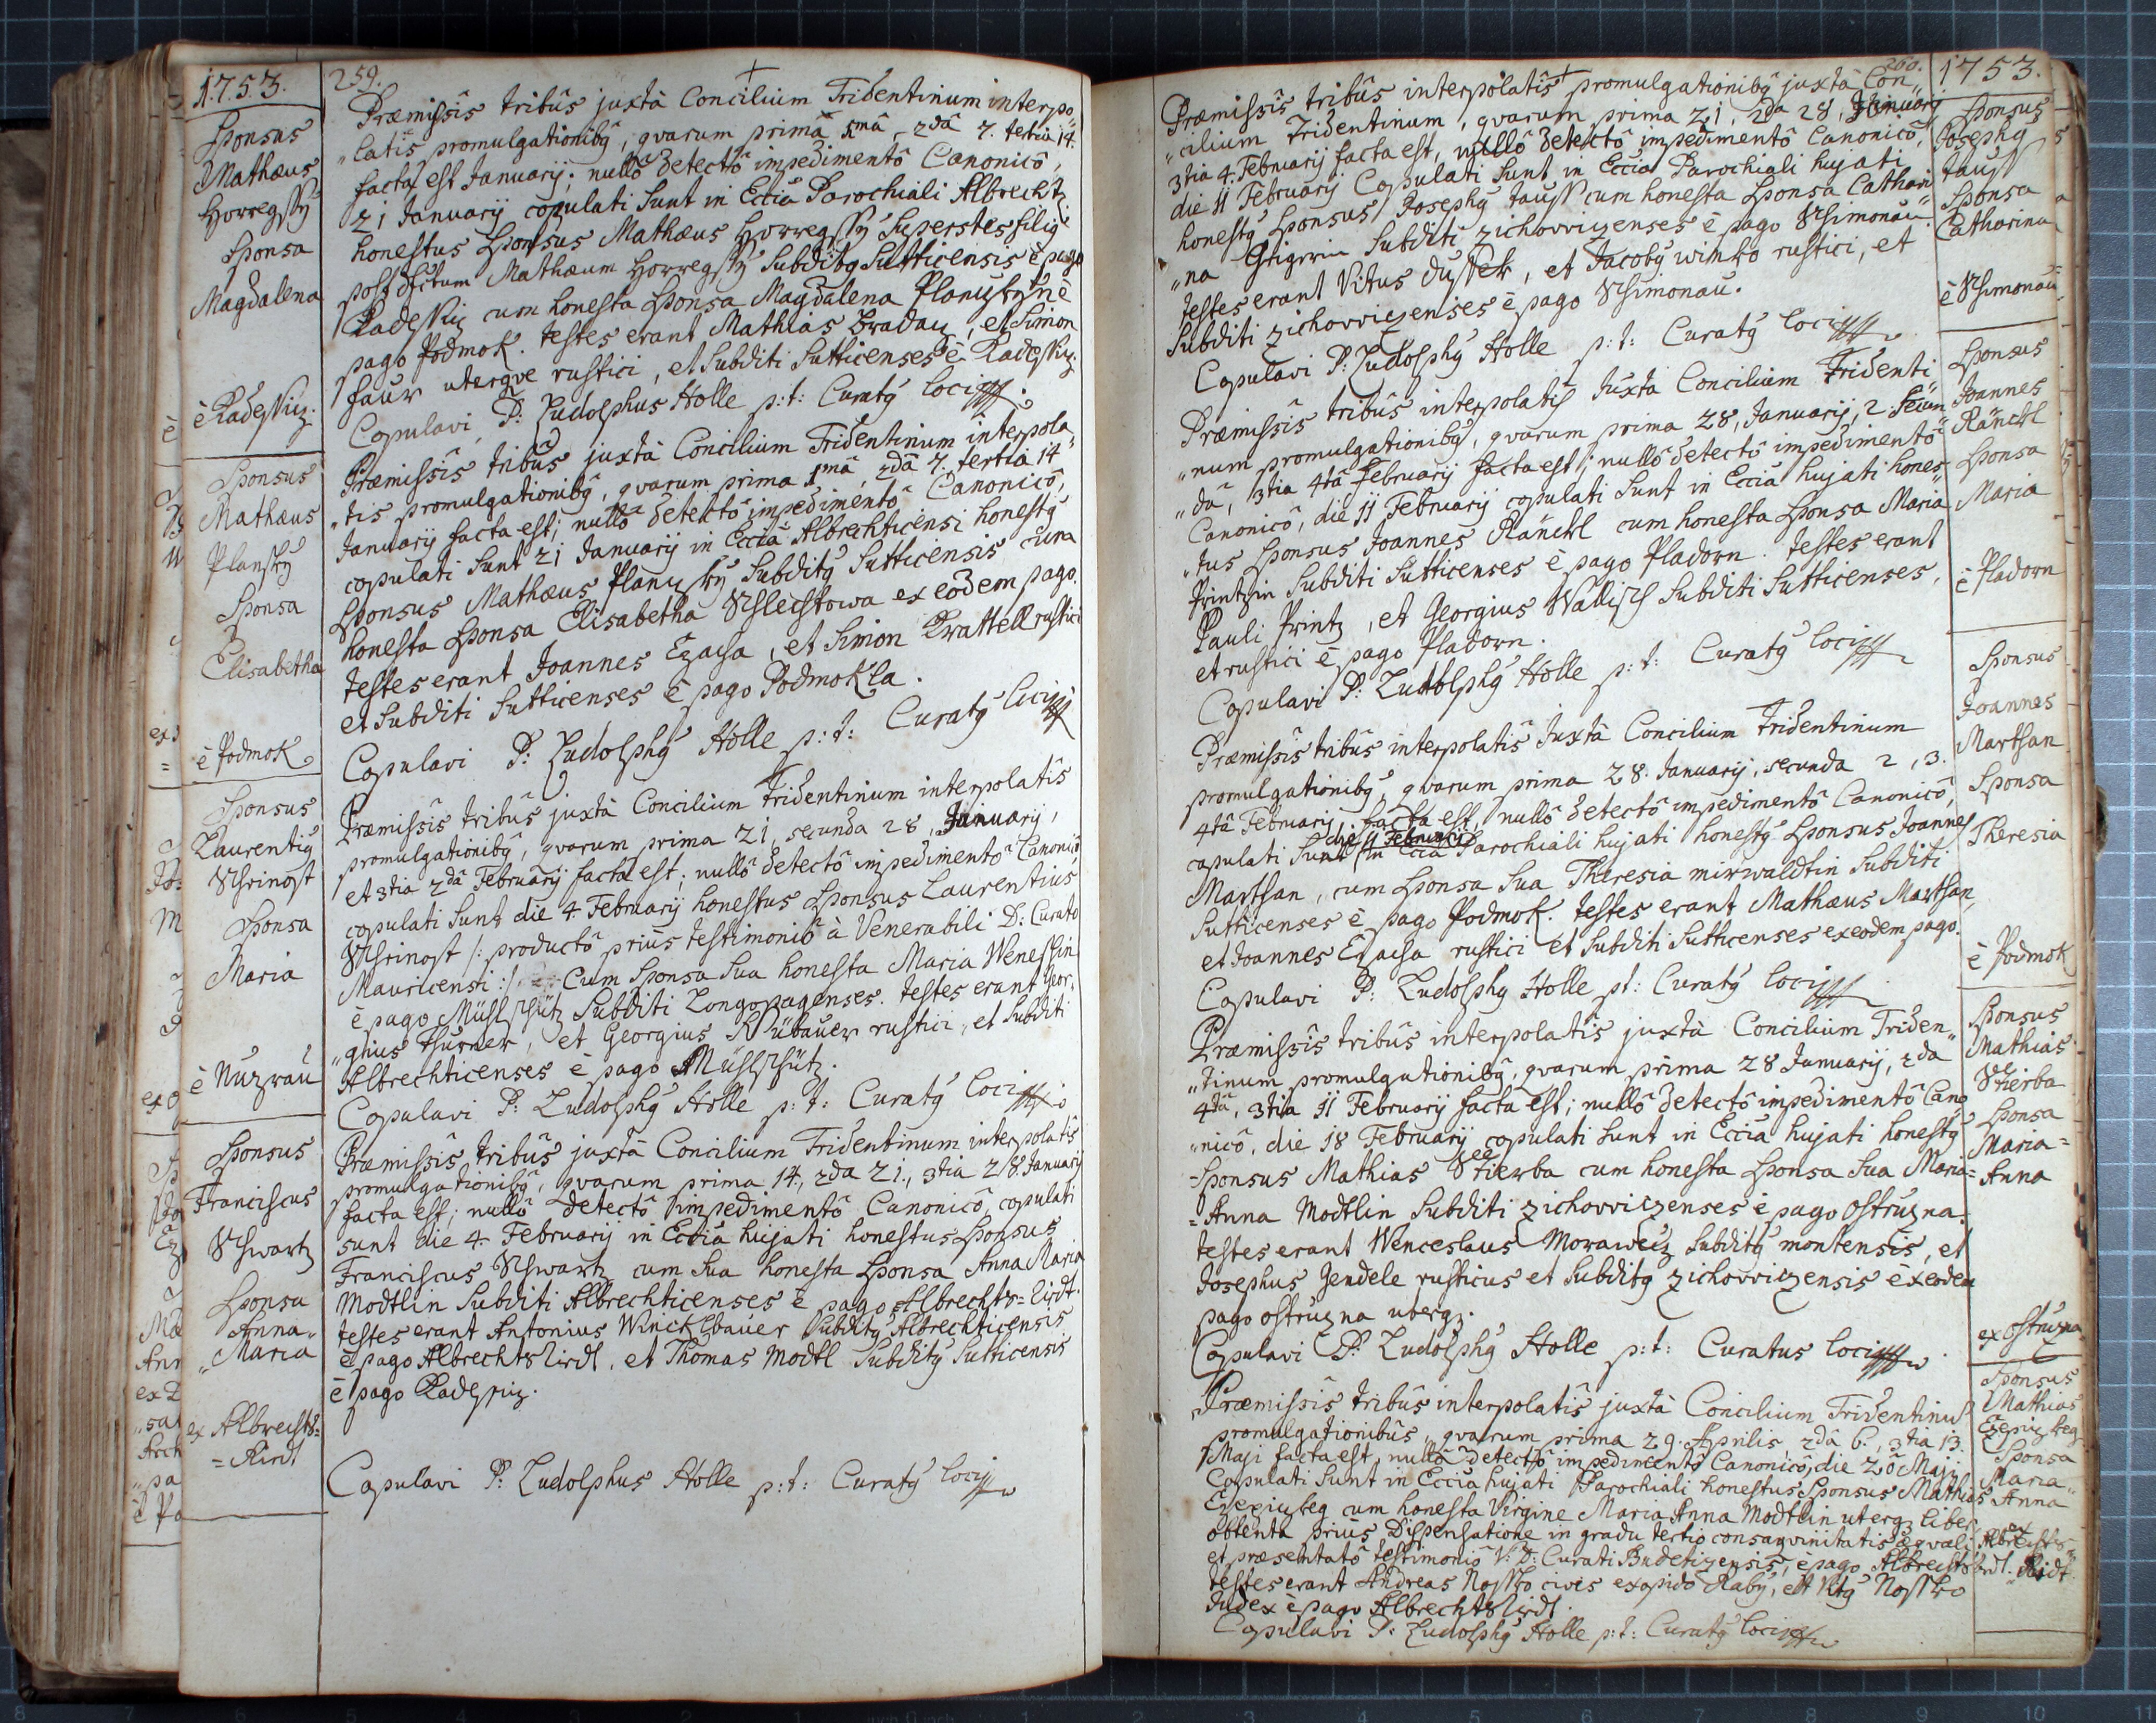 1753.
259.
Sponsus
Mathæus
Horregssÿ
Sponsa
Magdalena
è Radessitz.
Præmissis tribûs juxtà Concilium Tridentinum interpo„
„latis promulgationibq, qvarum primâ 1mâ, 2dâ 7. tertia 14.
facta est Januarij; nullô detectô impedimentô Canonicô,
21 Januarij copulati sunt in Eccia Parochiali Albrechtz:
honestus Sponsus Mathæus Horregssÿ Superstes filiq
post dfctum Mathæum Horregssÿ Subditq Sutticensis è pago
Radessitz cum honesta Sponsa Magdalena è
pago Podmok. testes erant Mathias Bradatz, et Simon
faur uterqve rustici, et Subditi Sutticenses è Radessitz.
Copulavi P: Ludolphus Holle p:t: Curatq loci
Sponsus
Mathæus
Planskÿ
Sponsa
Elisabetha
è Podmok
Præmissis tribûs juxtà Concilium Tridentinum interpola„
„tis promulgationibq, qvarum prima 1mâ, 2dâ 7. tertia 14
Januarij facta est; nullô detectô impedimentô Canonicô,
copulati sunt 21 Januarij in Eccia Albrechticensi honestq
Sponsus Mathæus Planzkÿ Subditq Sutticensis cum
honesta Sponsa Elisabetha ex eôdem pago.
testes erant Joannes Ezacsa, et Simon Krattell rustici
et Subditi Sutticenses è pago Podmokla.
Copulavi P: Ludolphq Holle p:t: Curatq loci
Sponsus
Laurentiq
Schrinost
Sponsa
Maria
è Nuzrau
Præmissis tribûs juxtà Concilium Tridentinum interpolatis
promulgationibq, qvarum prima 21, secunda 28, Januarij,
et 3tia 2dâ Februarij facta est; nullô detectô impedimentô Canonicô
copulati sunt die 4 Februarij honestus Sponsus Laurentius
Schrinost /: productô priùs testimoniô à Venerabili D: Curato
Mauricensi :/ Cum Sponsa Sua honesta Maria Wenessin
è pago Mühlschütz Subditi Longopagenses. testes erant Geor„
„gius Thurner, et Georgius rustici, et Subditi
Albrechticenses è pago Mühlschütz.
Copulavi P: Ludolphq Holle p:t: Curatq loci
Sponsus
Franciscus
Schwartz
Sponsa
Anna„
„Maria
ex Albrechts=
=Rindt
Præmissis tribûs juxtà Concilium Tridentinum interpolatis
promulgationibq, qvarum prima 14, 2da 21., 3tia 28. Januarij
facta est; nullô detectô impedimentô Canonicô, copulati
sunt die 4. Februarij in Eccia hujati honestus Sponsus
Franciscus Schwartz cum Sua honesta Sponsa Anna Maria
Modtlin Subditi Albrechticenses è pago Albrechts=Rindt.
testes erant Antonius Wincklbauer Subditq Albrechticensis
è pago Albrechtsrindt, et Thomas Modtl Subditq Sutticensis
è pago Radessitz.
Copulavi P: Ludolphus Holle p:t: Curatq loci
260.
1753.
Præmissis tribûs interpolatis promulgationibq juxtà Con„
„cilium Tridentinum, qvarum prima 21, 2da 28, Januarij
3tia 4. Februarij facta est, nullô detectô impedimentô Canonicô,
die 11 Februarij Copulati sunt in Eccia Parochiali hujati
honestq Sponsus Josephq Tauss cum honesta Sponsa Cathari
„na Subditi Zichovvizenses è pago Schimonau
testes erant Vitus Dussek, et Jacobq Wimko rustici, et
Subditi Zichovvizenses è pago Schimonau.
Copulavi P: Ludolphq Holle p:t: Curatq loci
Sponsus
Josephq
Tauss
Sponsa
Catharina
è Schimonau
Præmissis tribûs interpolatis juxtà Concilium Tridenti
„num promulgationibq, qvarum prima 28, Januarij, 2 secun
„da, 3tia 4tâ Februarij facta est; nullô detectô impedimentô
Canonicô, die 11 Februarij copulati sunt in Eccia hujati hones„
„tus Sponsus Joannes Ränckl cum honesta Sponsa Maria
Printzin Subditi Sutticenses è pago Pladorn. testes erant
Pauli Printz, et Georgius Wallisch Subditi Sutticenses,
et rustici è pago Pladorn.
Copulavi P: Ludolphq Holle p:t: Curatq loci
Sponsus
Joannes
Ränckl
Sponsa
Maria
è Pladorn
Præmissis tribûs interpolatis juxtà Concilium Tridentinum
promulgationibq, qvarum prima 28. Januarij, secunda 2, 3.
4tâ Februarij, facta est, nullô detectô impedimentô Canonicô,
die 11 Februarij
copulati sunt in Eccia Parochiali hujati honestq Sponsus Joannes
Martsan, cum Sponsa Sua Theresia Mirwaldtin Subditi
Sutticenses è pago Podmok. testes erant Mathæus Martsan,
et Joannes Ezacsa rustici et Subditi Sutticenses ex eodem pago.
Copulavi P: Ludolphq Holle pt: Curatq loci
Sponsus
Joannes
Martsan
Sponsa
Theresia
è Podmok
Præmissis tribûs interpolatis juxtà Concilium Triden„
„tinum promulgationibq, qvarum prima 28 Januarij, 2da
4tâ, 3tia 11 Februarij facta est; nullô detectô impedimentô Cano
„nicô, die 18 Februarij copulati sunt in Eccia hujati honestq
=Sponsus Mathias Stierba cum honesta Sponsa Sua Maria=
=Anna Modtlin Subditi Zichovvizenses è pago Ostruzna.
testes erant Wenceslaus Morawetz Subditq montensis, et
Josephus Jendele rusticus et Subditq Zichovvizensis èx eodem
pago Ostruzna uterqz.
Copulavi P: Ludolphq Holle p:t: Curatus loci
Sponsus
Mathias
Stierba
Sponsa
Maria=
=Anna
ex Ostruzna
Præmissis tribûs interpolatis juxtà Concilium Tridentinu
promulgationibûs, qvarum prima 29. Aprilis, 2dâ 6., 3tia 13.
Maji facta est, nullô detectô impedimentô Canonicô, die 20 Maji
Copulati sunt in Eccia hujati Parochiali honestus Sponsus Mathias
cum honesta Virgine Maria Anna Modtlin uterqz liber
obtentâ priùs Dispensatione in gradu tertio consanqvinitatis æqvali
et præsentatô testimoniô V: D: Curati Budetizensis, è pago Albrechtsrindt.
testes erant Andreas Nossko cives ex opido Rabÿ, et Vitq Nossko
Judex è pago Albrechtsrindt.
Copulavi P: Ludolphq Holle p:t: Curatq loci
Sponsus
Mathias
Sponsa
Maria„
Anna
ex
Albrechts=
Rindt